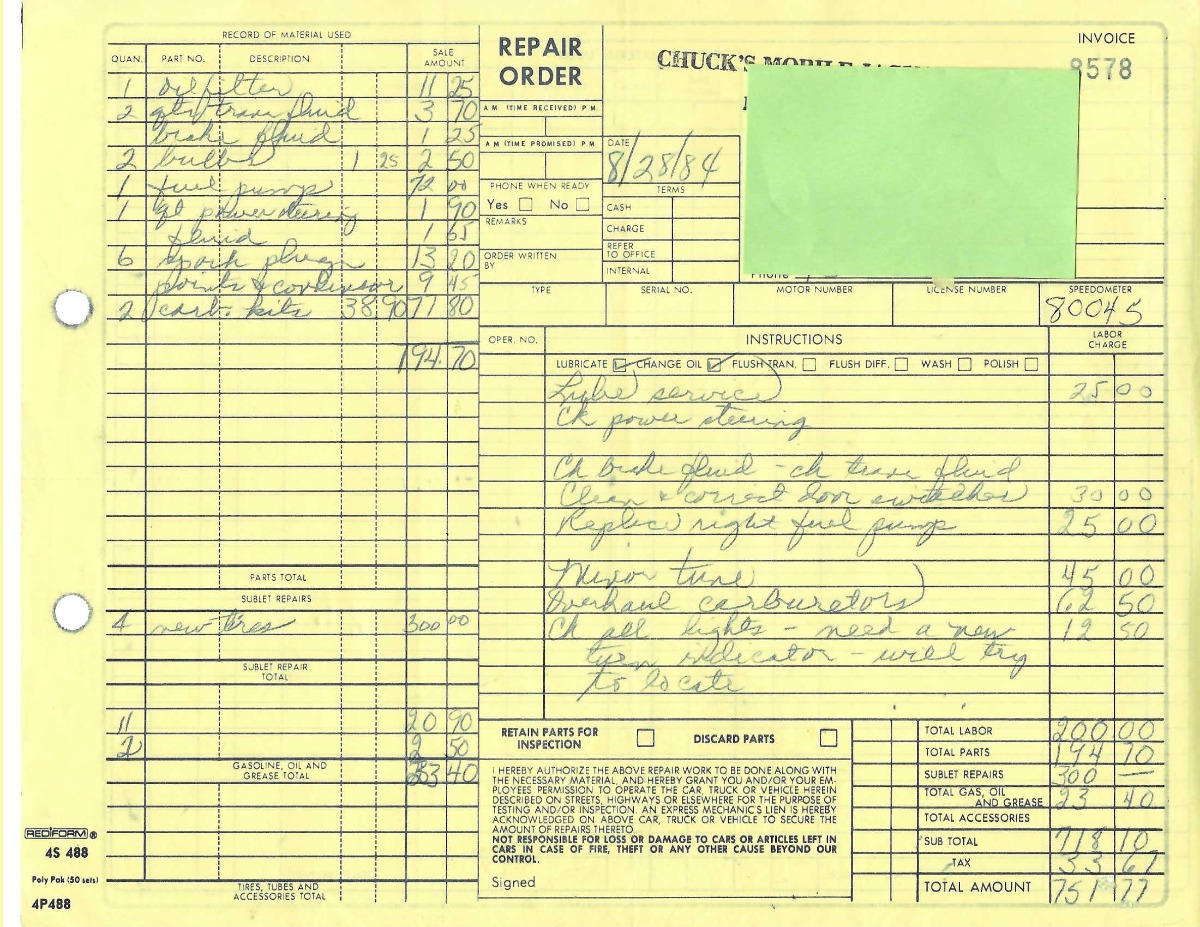 RECORD OF MATERIAL USED
QUAN. PART NO. DESCRIPTION SALE AMOUNT
1 oil filter 11 25
2 qts trans fluid 3 70
brake fluid 1 25
2 bulbs 1 25 2 50
1 fuel pump 72 00
1 qt power steering 1 90
fluid 1 65
6 spark plugs 13 20
points & condensor 9 45
2 carb. kits 38.90 77 80
194.70
PARTS TOTAL
SUBLET REPAIRS
4 new tires 300 00
SUBLET REPAIR TOTAL
11 20 90
2 2 50
GASOLINE, OIL AND GREASE TOTAL 23 40
TIRES, TUBES AND ACCESSORIES TOTAL
REDIFORM ®
4S 488
Poly Pak (50 sets)
4P488
REPAIR ORDER
A M (TIME RECEIVED) P M
A M (TIME PROMISED) P M
PHONE WHEN READY
Yes No
REMARKS
ORDER WRITTEN BY
CHUCK'S MOBILE
INVOICE
8578
DATE
8/28/84
TERMS
CASH
CHARGE
REFER TO OFFICE
INTERNAL
Phone
TYPE SERIAL NO. MOTOR NUMBER LICENSE NUMBER SPEEDOMETER
80045
OPER. NO. INSTRUCTIONS LABOR CHARGE
LUBRICATE CHANGE OIL FLUSH TRAN. FLUSH DIFF. WASH POLISH
Lube service 25 00
Ck power steering
Ck brake fluid - ck trans fluid
Clean & correct door switches 30 00
Replace right fuel pump 25 00
Minor tune 45 00
Overhaul carburetors 62 50
Ck all lights - need a new 12 50
turn indicator - will try
to locate
RETAIN PARTS FOR INSPECTION DISCARD PARTS
I HEREBY AUTHORIZE THE ABOVE REPAIR WORK TO BE DONE ALONG WITH
THE NECESSARY MATERIAL, AND HEREBY GRANT YOU AND/OR YOUR EM-
PLOYEES PERMISSION TO OPERATE THE CAR, TRUCK OR VEHICLE HEREIN
DESCRIBED ON STREETS, HIGHWAYS OR ELSEWHERE FOR THE PURPOSE OF
TESTING AND/OR INSPECTION. AN EXPRESS MECHANIC'S LIEN IS HEREBY
ACKNOWLEDGED ON ABOVE CAR, TRUCK OR VEHICLE TO SECURE THE
AMOUNT OF REPAIRS THERETO.
NOT RESPONSIBLE FOR LOSS OR DAMAGE TO CARS OR ARTICLES LEFT IN
CARS IN CASE OF FIRE, THEFT OR ANY OTHER CAUSE BEYOND OUR
CONTROL.
Signed
TOTAL LABOR 200 00
TOTAL PARTS 194 70
SUBLET REPAIRS 300 —
TOTAL GAS, OIL AND GREASE 23 40
TOTAL ACCESSORIES
SUB TOTAL 718 10
TAX 33 67
TOTAL AMOUNT 751 77